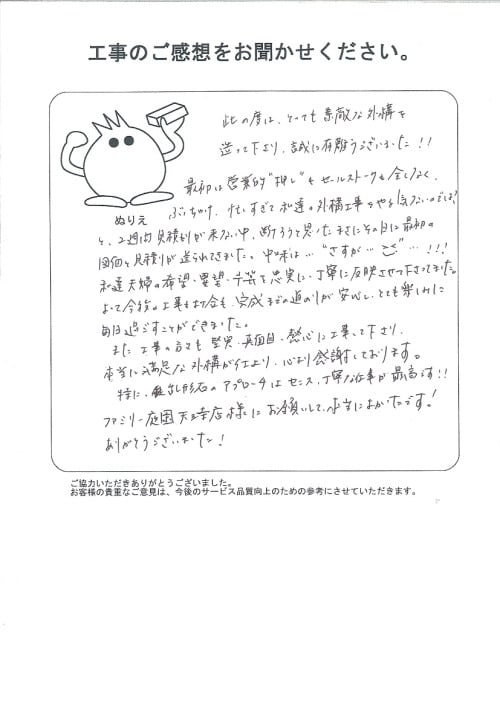 工事のご感想をお聞かせください。
ぬりえ
此の度は、とっても素敵な外構を
造って下より、誠に有難うございました!!
最初は営業的"押し"もセールストークも全くなく、
ぶっちゃけ、忙しすぎて私達の外構工事をやる気ないのでは?
と、2週間見積りが来ない中、断ろうと思ったまさにその日に最初の
図面と見積りが送られてきました。中味は…"さすが…ご"…!!!
私達夫婦の希望・要望・予算を忠実に、丁寧に反映させて下さってました。
よって今後の工事も打合も、完成までの道のりが安心し、とても楽しみに
毎日過ごすことができました。
また工事の方々も堅実・真面目・熱心に工事して下より、
本当に満足な外構が仕上より、心より感謝しております。
特に、乱形石のアプローチはセンス、丁寧な仕事が最高です!!
ファミリー庭園天王寺店様にお願いして、本当によかったです!
ありがとうございました!
ご協力いただきありがとうございました。
お客様の貴重なご意見は、今後のサービス品質向上のための参考にさせていただきます。